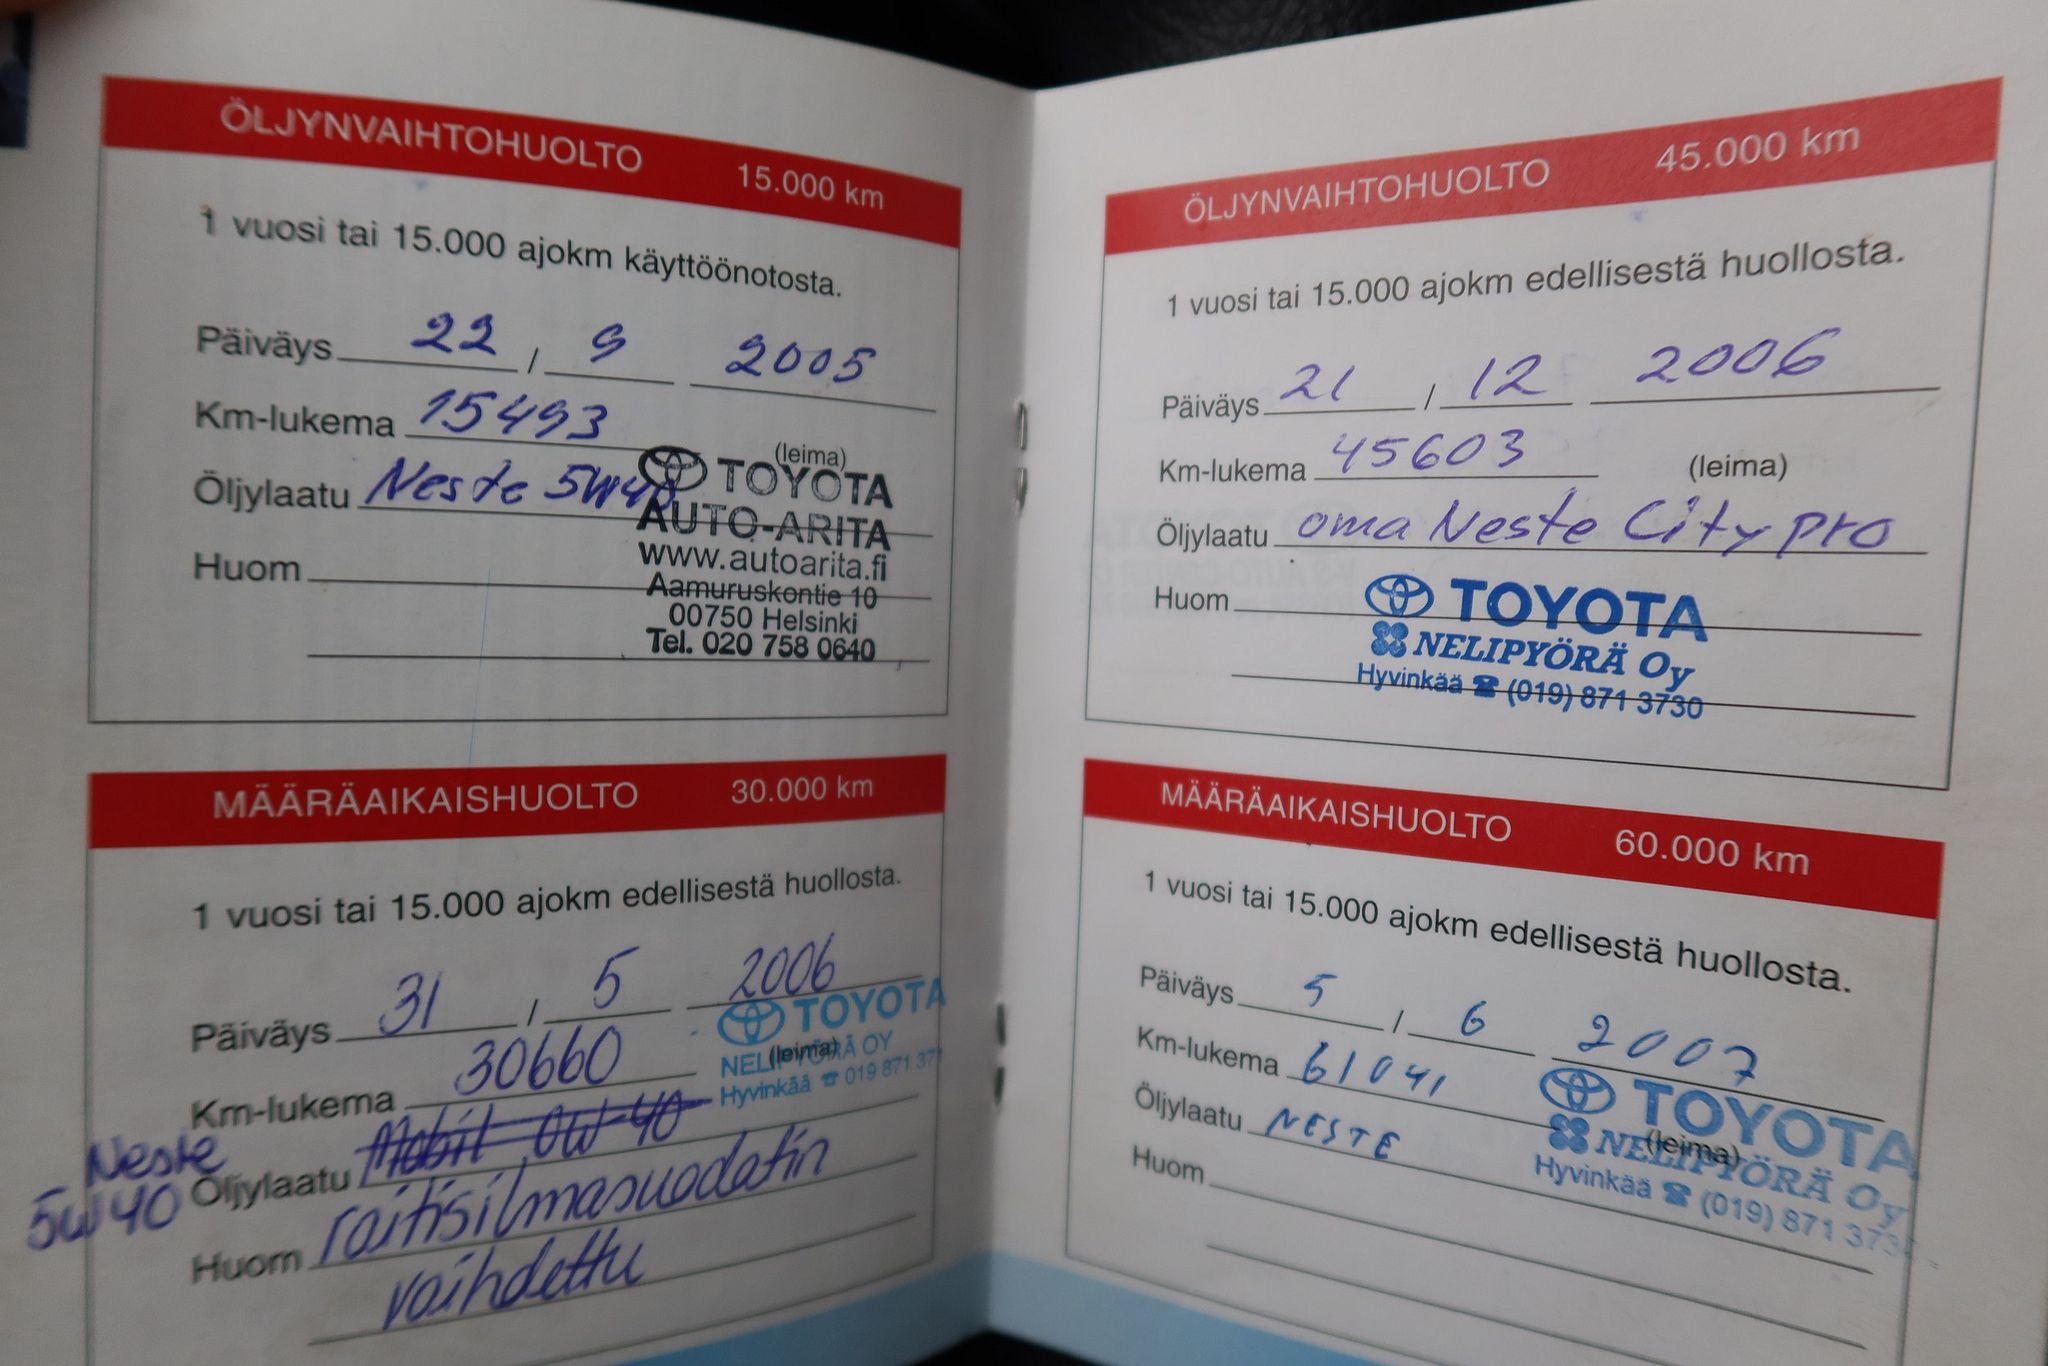 ÖLJYNVAIHTOHUOLTO 15.000 km
1 vuosi tai 15.000 ajokm käyttöönotosta.
Päiväys 22 / 9 2005
Km-lukema 15493
(leima)
Öljylaatu Neste 5W40
TOYOTA
AUTO-ARITA
www.autoarita.fi
Huom
Aamuruskontie 10
00750 Helsinki
Tel. 020 758 0640
MÄÄRÄAIKAISHUOLTO 30.000 km
1 vuosi tai 15.000 ajokm edellisestä huollosta.
Päiväys 31 / 5 2006
TOYOTA
Km-lukema 30660
(leima)
NELIPYÖRÄ OY
Hyvinkää ☎ 019 871 37
Neste
5W40
Öljylaatu Mobil 0W-40
Huom raitisilmasuodatin
vaihdettu
ÖLJYNVAIHTOHUOLTO 45.000 km
1 vuosi tai 15.000 ajokm edellisestä huollosta.
Päiväys 21 / 12 2006
Km-lukema 45603 (leima)
Öljylaatu oma Neste City pro
Huom
TOYOTA
NELIPYÖRÄ Oy
Hyvinkää ☎ (019) 871 3730
MÄÄRÄAIKAISHUOLTO 60.000 km
1 vuosi tai 15.000 ajokm edellisestä huollosta.
Päiväys 5 / 6 2007
Km-lukema 61041
TOYOTA
(leima)
Öljylaatu NESTE
NELIPYÖRÄ Oy
Hyvinkää ☎ (019) 871 373
Huom